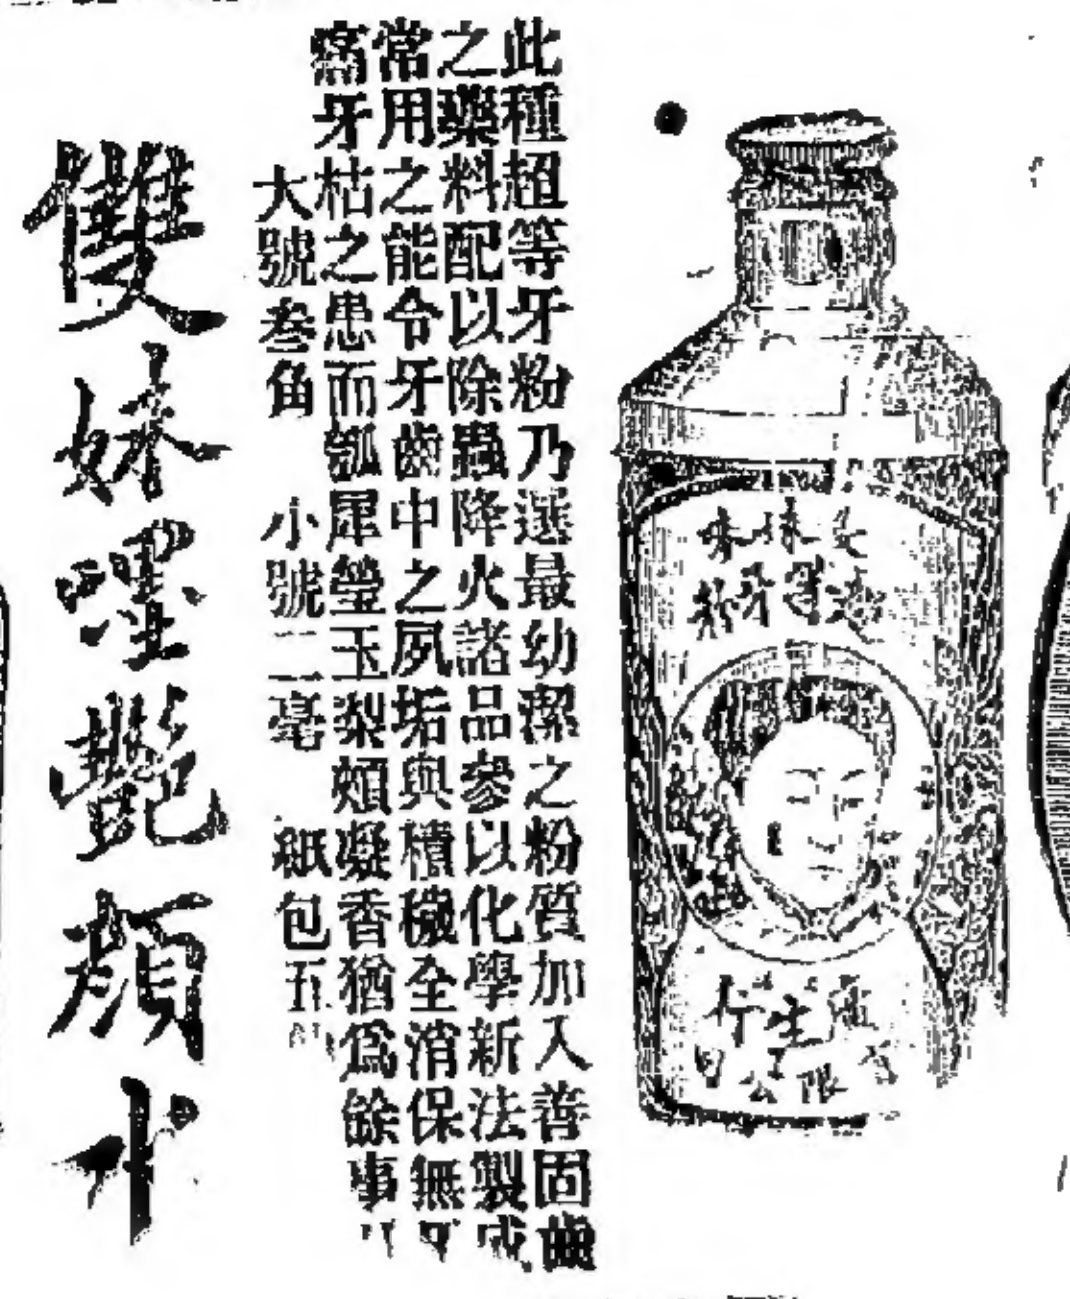 廣生行
有限公司
此種超等牙粉乃選最幼潔之粉質加入善固齒
之藥料配以除蟲降火諸品參以化學新法製成
常用之能令牙齒中之夙垢與積穢全消保無牙
痛牙枯之患而瓠犀瑩玉梨頰凝香猶爲餘事
大號叁角 小號二毫 紙包五
雙妹嚜艷顏水